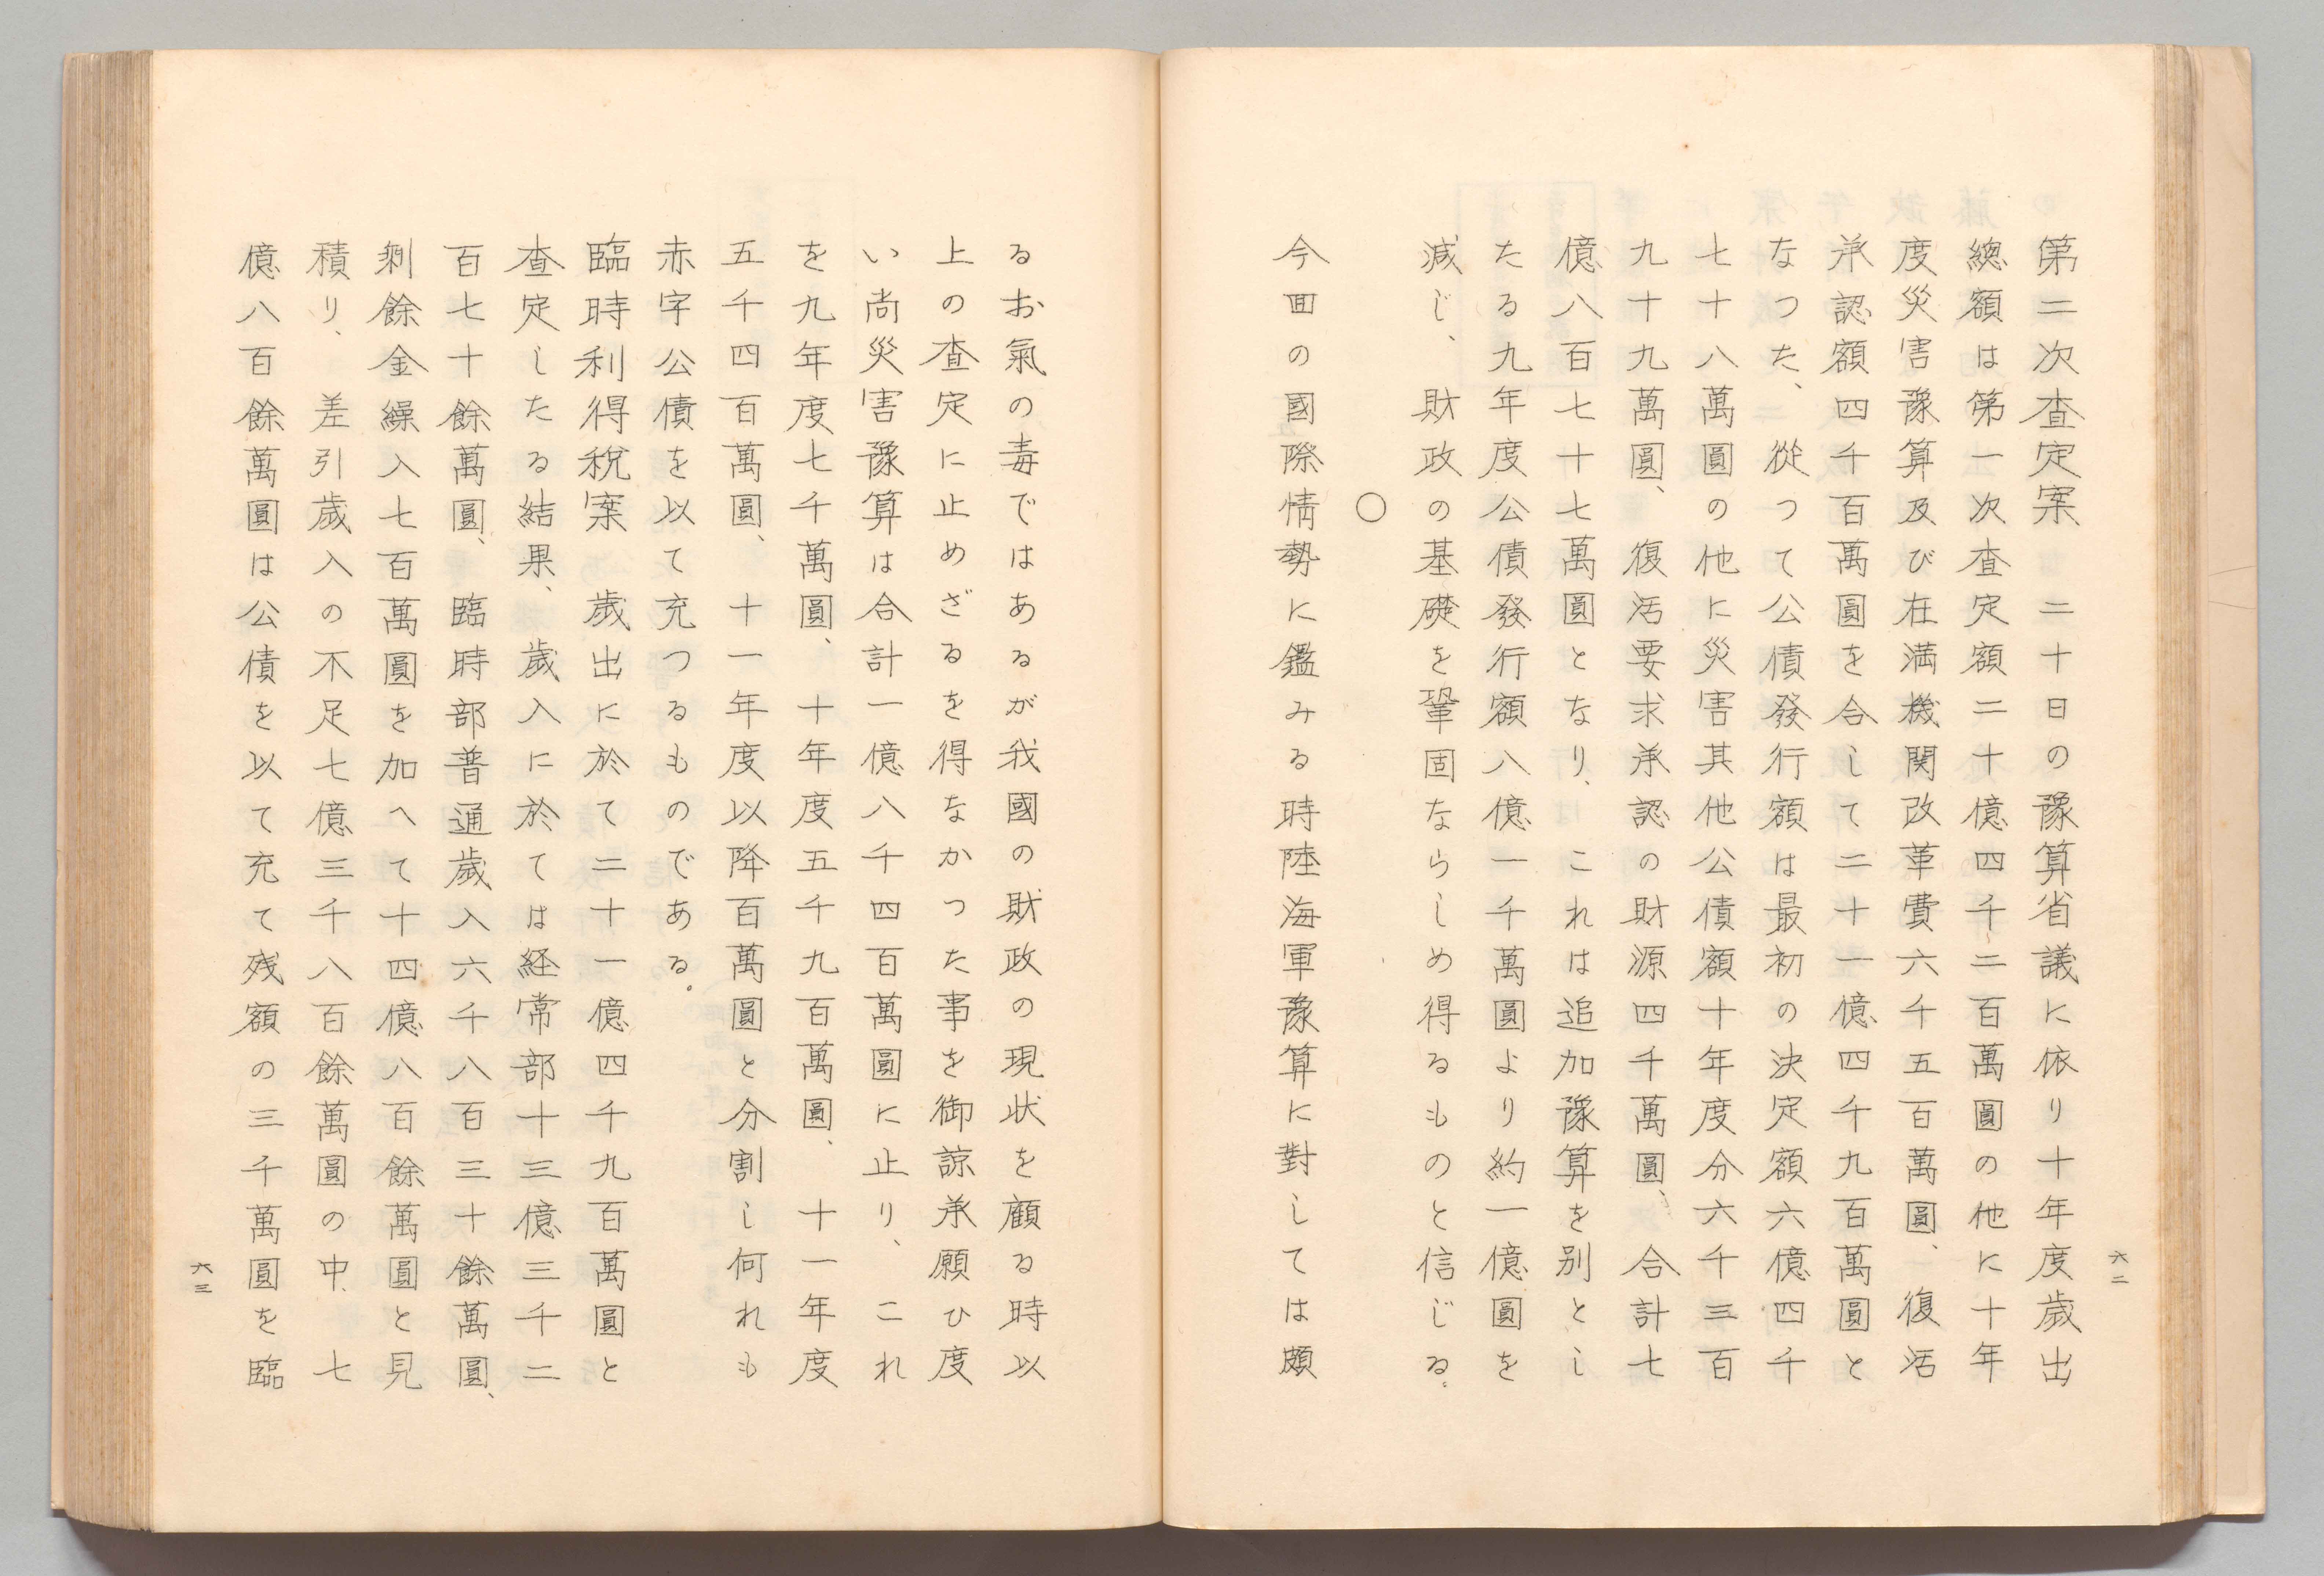 六二
第二次査定案　二十日の豫算省議に依り十年度歳出
總額は第一次査定額二十億四千二百萬圓の他に十年
度災害豫算及び在満機関改革費六千五百萬圓、復活
承認額四千百萬圓を合して二十一億四千九百萬圓と
なつた、從つて公債發行額は最初の決定額六億四千
七十八萬圓の他に災害其他公債額十年度分六千三百
九十九萬圓、復活要求承認の財源四千萬圓、合計七
億八百七十七萬圓となり、これは追加豫算を別とし
たる九年度公債發行額八億一千萬圓より約一億圓を
減じ、財政の基礎を鞏固ならしめ得るものと信じる。
○
今回の國際情勢に鑑みる時陸海軍豫算に對しては頗
るお氣の毒ではあるが我國の財政の現状を顧る時以
上の査定に止めざるを得なかつた事を御諒承願ひ度
い尚災害豫算は合計一億八千四百萬圓に止り、これ
を九年度七千萬圓、十年度五千九百萬圓、十一年度
五千四百萬圓、十一年度以降百萬圓と分割し何れも
赤字公債を以て充つるものである。
臨時利得税案　歳出に於て二十一億四千九百萬圓と
査定したる結果、歳入に於ては経常部十三億三千二
百七十餘萬圓、臨時部普通歳入六千八百三十餘萬圓、
剰餘金繰入七百萬圓を加へて十四億八百餘萬圓と見
積り、差引歳入の不足七億三千八百餘萬圓の中、七
億八百餘萬圓は公債を以て充て残額の三千萬圓を臨
六三